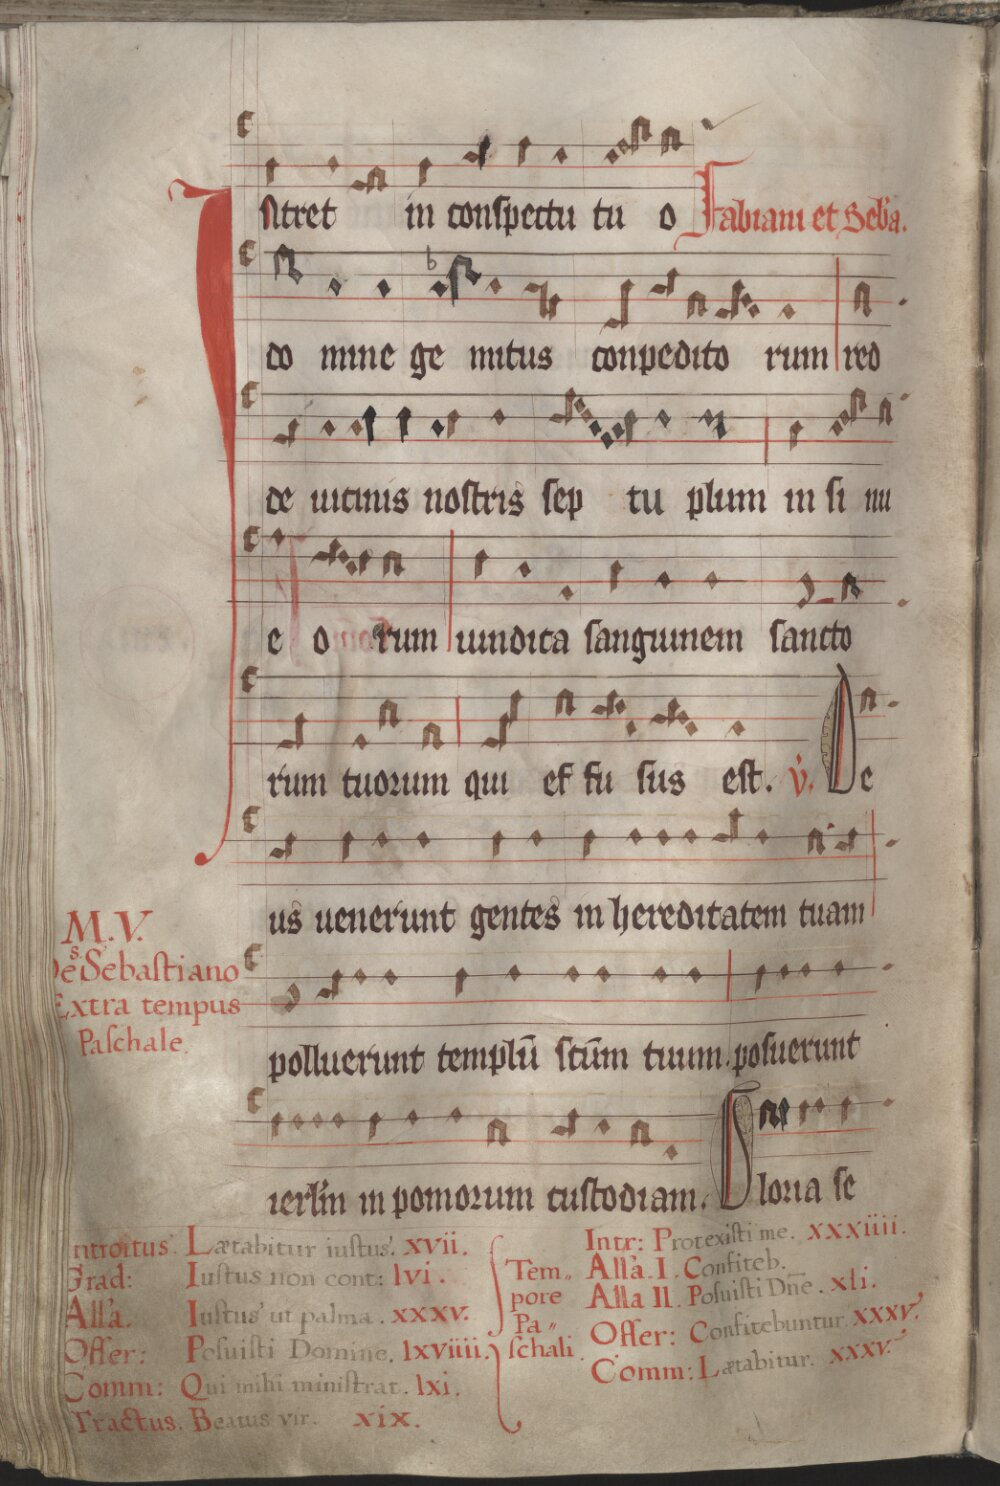 Intret in conspectu tu o Fabiani et Seb'a.
do mine ge mitus conpedito rum red
de uicinis nostris sep tu plum in si nu
e o rum uindica sanguinem sancto
rum tuorum qui ef fu sus est. v. De
us uenerunt gentes in hereditatem tuam
polluerunt templū scūm tuum. posuerunt
ierl'm in pomorum custodiam. Gloria se
M. V.
De S. Sebastiano
Extra tempus
Paschale.
Introitus. Lætabitur iustus. xvii.
Grad: Iustus non cont: lvi.
All'a. Iustus ut palma. xxxv.
Offer: Posuisti Domine. lxviiii.
Comm: Qui mihi ministrat. lxi.
Tractus. Beatus vir. xix.
Tem„
pore
Pa„
schali
Intr: Protexisti me. xxxiiii.
All'a. I. Confiteb.
Alla II. Posuisti Dn̄e. xli.
Offer: Confitebuntur. xxxv.
Comm: Lætabitur. xxxv.